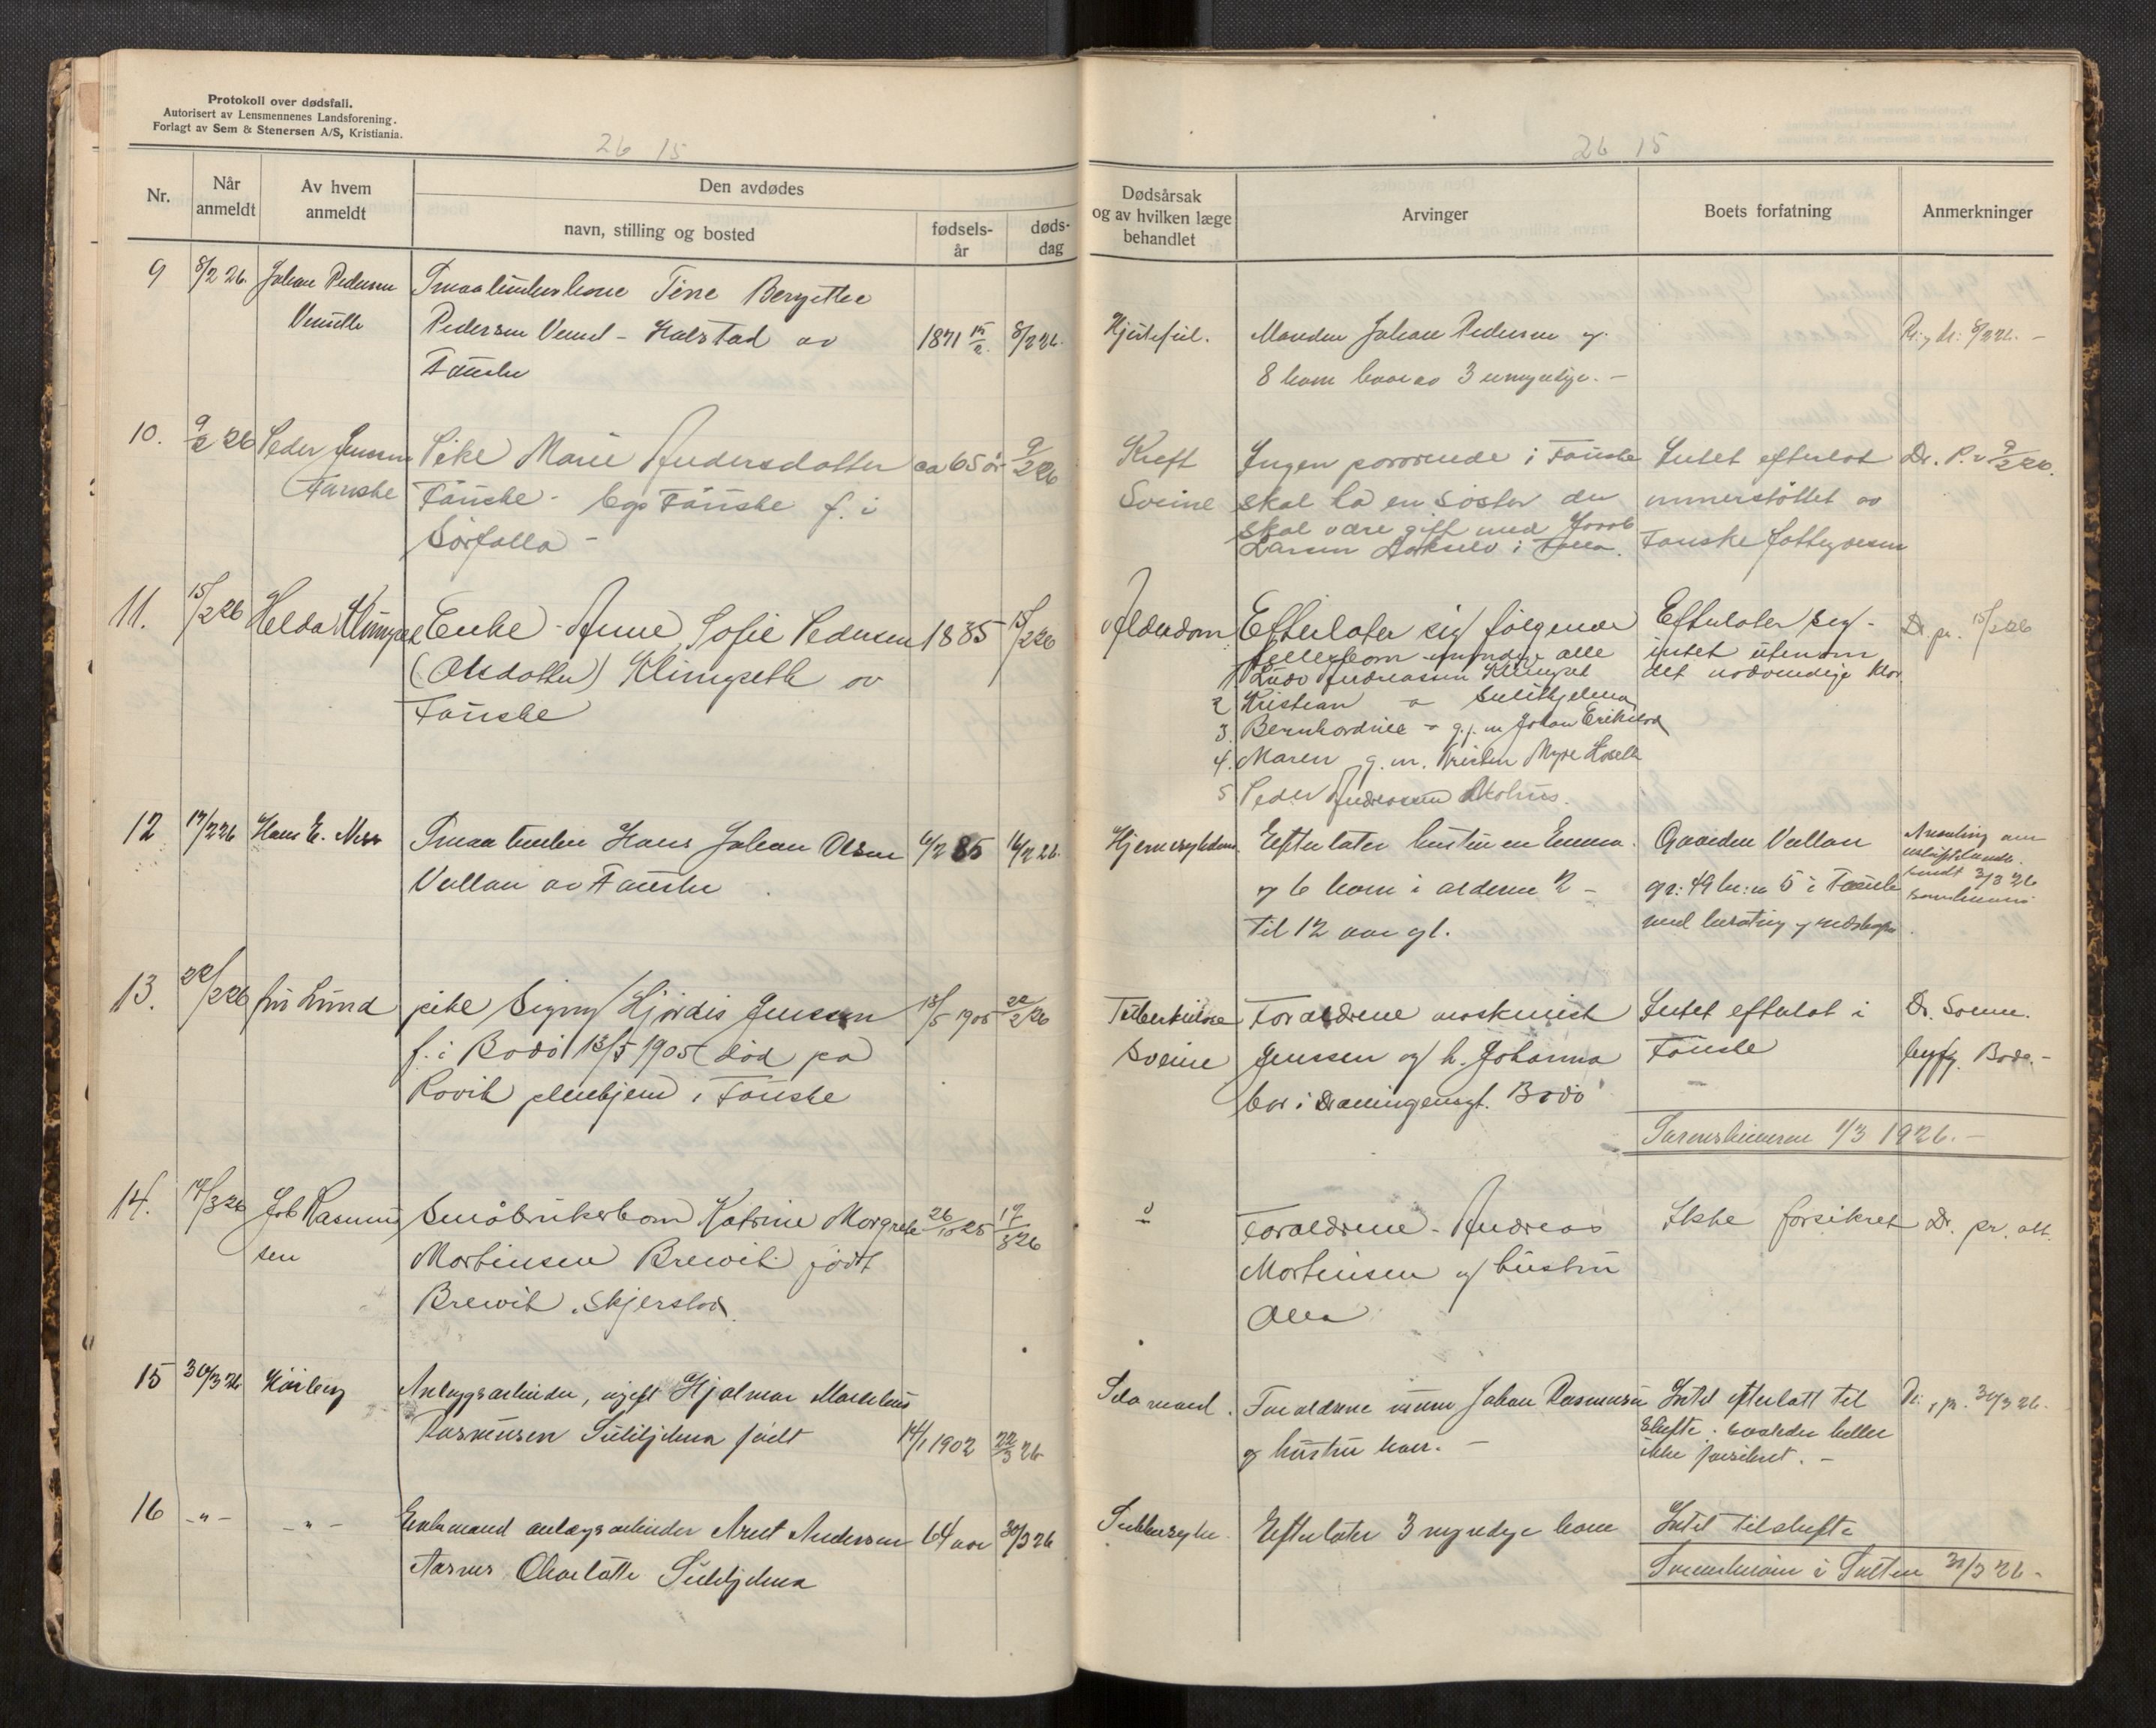 Protokoll over dødsfall.
Autorisert av Lensmennenes Landsforening.
Forlagt av Sem & Stenersen A/S, Kristiania.
26 15
Nr.
Når anmeldt
Av hvem anmeldt
Den avdødes
navn, stilling og bosted
fødsels-år
døds-dag
9 8/2 26. Johan Pedersen
Tine Bergitte
Pedersen - Halstad av 1871 15/2. 8/2 26.
Fauske
10. 9/2 26 Peder Jensen Pike Marie Andersdatter ca 65 år 9/2 26
Fauske Fauske - f. i
Sørfolla -
11. 15/2 26 Helda Klungset Enke Anne Sofie Pedersen 1835 15/2 26
(Olsdatter) Klungseth av
Fauske
12 17/2 26 Hans E. Hans Johan Olsen 6/2 85 16/2 26.
Vallan av Fauske
13. 22/2 26 fru Lund pike Signy Hjørdis Jenssen 13/5 1905 22/2 26
f. i Bodø 13/5 1905 død på
Rovik pleiehjem i Fauske
14. 17/3 26 Job Rasmus Småbrukerbarn Katrine Margrete 26/10 25 17/3 26
sen Mortensen Brewik født
Brewik, Skjerstad
15 30/3 26 Anlægsarbeider, ugift Hjalmar
Rasmussen Sulitjelma født 14/1 1902 22/3 26
16 -"- -"- Enkemand anlægsarbeider Arnt Andersen 64 aar 30/3 26
Charlotta Sulitjelma
26 15
Dødsårsak
og av hvilken læge
behandlet
Arvinger
Boets forfatning
Anmerkninger
Hjertefeil. Manden Johan Pedersen og 8/2 26. -
8 barn hvorav 3 umyndige. -
Kreft Ingen pårørende i Fauske Intet efterlot Dr. P. 9/2 26.
Sveine skal ha en søster der understøttet av
skal være gift med Jacob
Larsen i Folla. Fauske fattigvesen
Alderdom Efterlater sig følgende Efterlater sig Dr. pr. 15/2 26
fellesbarn myndige alle intet utenom
1 Ludv Andreassen Klungset det nødvendige klær
2 Kristian " Sulitjelma
3. Bernhardine " g. m Johan
4. Maren g. m. Kristen Myre
5 Peder Andreassen
Efterlater hustruen Emma. Gaarden Vallan
og 6 barn i alderen 2 - gr: 49 br: n 5 i Fauske sendt 3/3 26
til 12 aar gl. med besætning og redskaper
Tuberkulose Foreldrene maskinist Intet efterlot i
Sveine Jenssen og h. Johanna Fauske byfg. Bodø. -
bor i Dronningensgt. Bodø
Sorenskriveren 1/3 1926. -
" Foreldrene Andreas Ikke forsikret Dr. pr. att.
Mortensen og hustru
Forældrene Johan Rasmussen Intet efterlatt til pr. 30/3 26.
og hustru - Skifte. heller
ikke forsikret. -
Sukkersyke. Efterlater 3 myndige barn Intet til skifte
Sorenskriveren i Salten 31/3 26 -